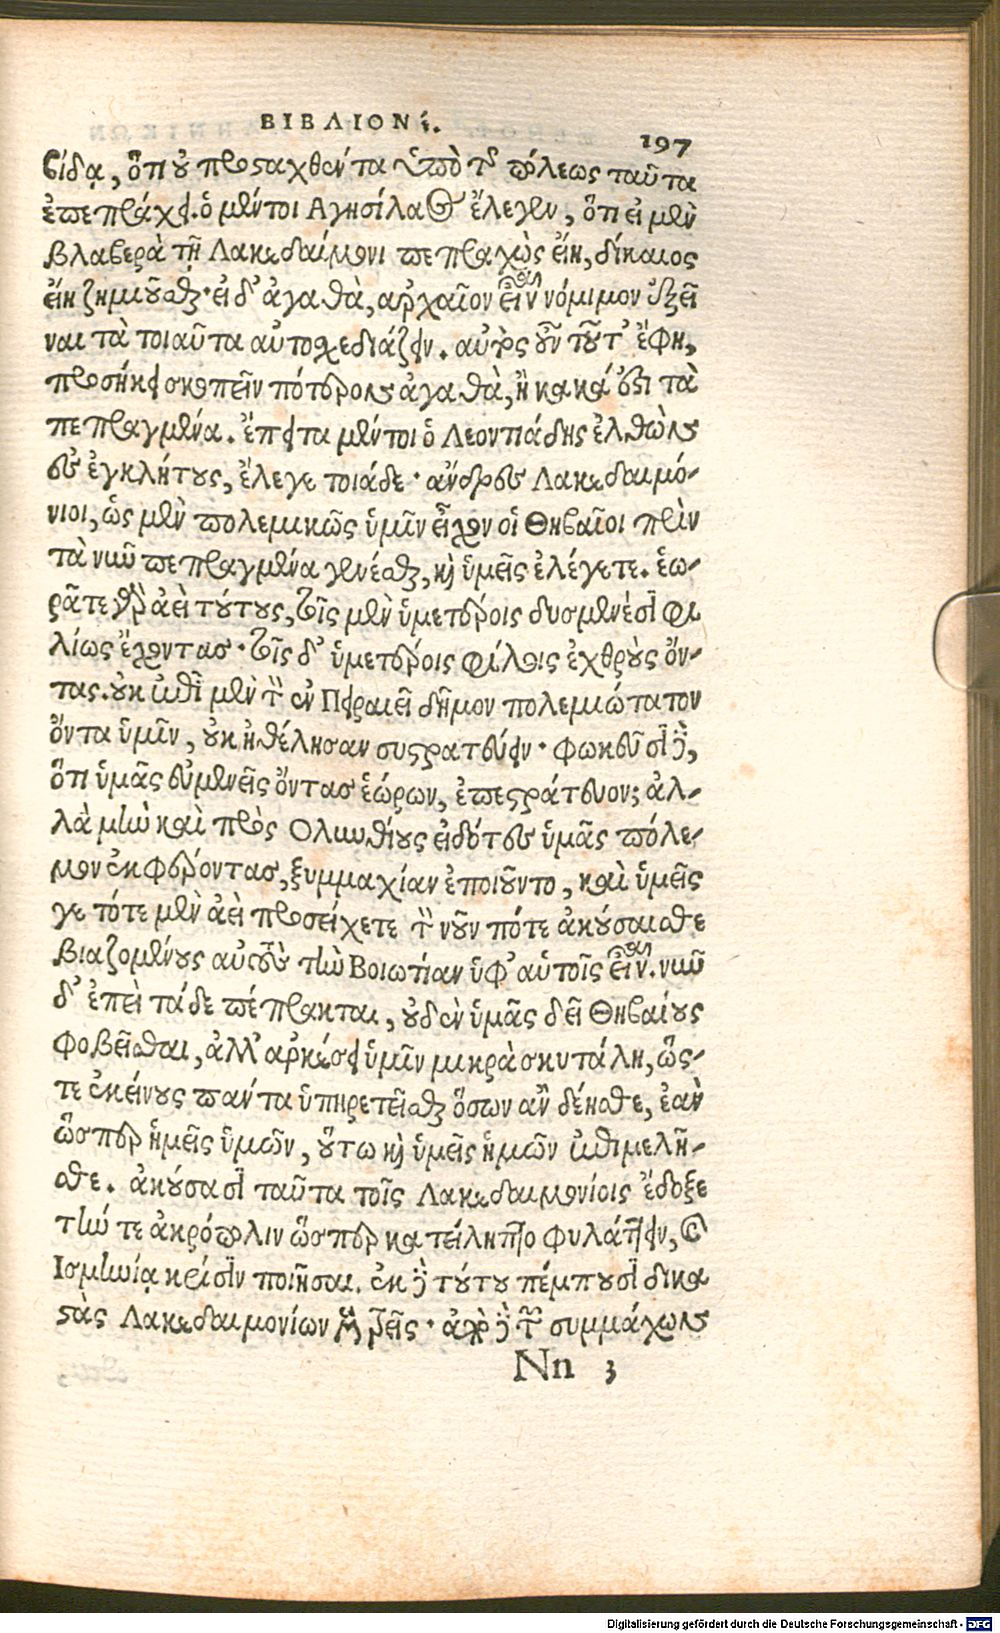 ΒΙΒΛΙΟΝ έ.
197
βίδᾳ, ὅτι οὐ προσταχθέντα ὑπὸ τῆς πόλεως ταῦτα
ἐπεπράχει. ὁ μέντοι Αγησίλαος ἔλεγεν, ὅτι εἰ μὲν
βλαβερὰ τῇ Λακεδαίμονι πεπραχὼς εἴη, δίκαιος
εἴη ζημιοῦσθαι· εἰ δ' ἀγαθὰ, ἀρχαῖον εἶναι νόμιμον ἐξεῖ
ναι τὰ τοιαῦτα αὐτοσχεδιάζειν. αὐτὸς οὖν τοῦτ' ἔφη,
προσήκει σκοπεῖν πότερον ἀγαθὰ, ἢ κακά ἐστι τὰ
πεπραγμένα. ἔπειτα μέντοι ὁ Λεοντιάδης ἐλθὼν
ἐς ἐγκλήτους, ἔλεγε τοιάδε· ἄνδρες Λακεδαιμό-
νιοι, ὡς μὲν πολεμικῶς ὑμῖν εἶχον οἱ Θηβαῖοι πρὶν
τὰ νῦν πεπραγμένα γενέσθαι, καὶ ὑμεῖς ἐλέγετε. ἑω-
ρᾶτε γὰρ ἀεὶ τούτους, τοῖς μὲν ὑμετέροις δυσμενέσι φι
λίως ἔχοντας· τοῖς δ' ὑμετέροις φίλοις ἐχθροὺς ὄν-
τας. οὐκ ἐπὶ μὲν τὸν ἐν Πειραιεῖ δῆμον πολεμιώτατον
ὄντα ὑμῖν, οὐκ ἠθέλησαν συστρατεύειν· φωκεῦσι δὲ,
ὅτι ὑμᾶς εὐμενεῖς ὄντας ἑώρων, ἐπεστράτευον; ἀλ-
λὰ μὴν καὶ πρὸς Ολυνθίους εἰδότες ὑμᾶς πόλε-
μον ἐκφέροντας, ξυμμαχίαν ἐποιοῦντο, καὶ ὑμεῖς
γε τότε μὲν ἀεὶ προσείχετε τὸν νοῦν πότε ἀκούσαισθε
βιαζομένους αὐτοὺς τὴν Βοιωτίαν ὑφ' αὑτοῖς εἶναι. νῦν
δ' ἐπεὶ τάδε πέπρακται, οὐδὲν ὑμᾶς δεῖ Θηβαίους
φοβεῖσθαι, ἀλλ' ἀρκέσει ὑμῖν μικρὰ σκυτάλη, ὥς-
τε ἐκείνους πάντα ὑπηρετεῖσθαι ὅσων ἂν δέησθε, ἐὰν
ὥσπερ ἡμεῖς ὑμῶν, οὕτω καὶ ὑμεῖς ἡμῶν ἐπιμελῆ-
σθε. ἀκούσασι ταῦτα τοῖς Λακεδαιμονίοις ἔδοξε
τήν τε ἀκρόπολιν ὥσπερ κατείληπτο φυλάττειν, καὶ
Ισμηνίᾳ κρίσιν ποιῆσαι. ἐκ δὲ τούτου πέμπουσι δικα
στὰς Λακεδαιμονίων μὲν τρεῖς· ἀπὸ δὲ τῶν συμμάχων
Nn 3
Digitalisierung gefördert durch die Deutsche Forschungsgemeinschaft - DFG